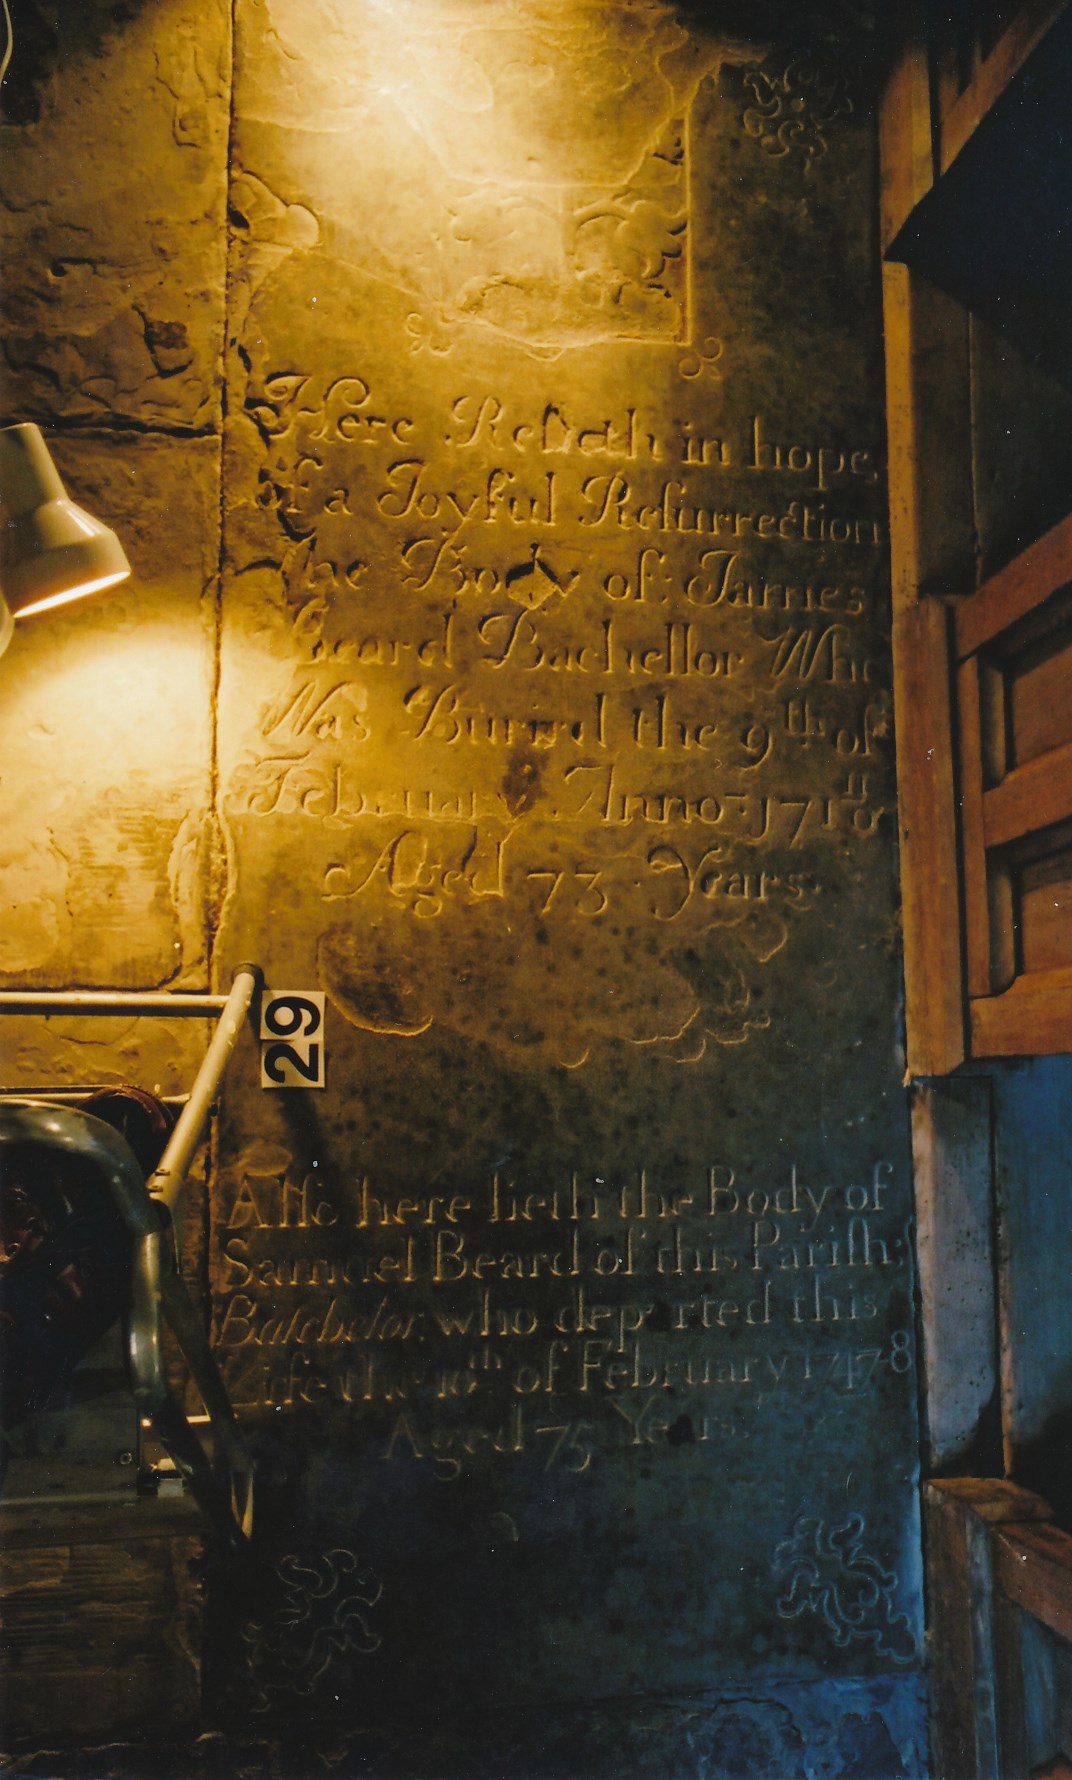 Here Resteth in hope
of a Joyful Reſurrection
the Body of James
Beard Bachellor Who
Was Buried the 9th of
February Anno 171
Aged 73 Years
29
Alſo here lieth the Body of
Samuel Beard of this Pariſh:
Batchelor who departed this
Life the 10th of February 1747-8
Aged 75 Years.